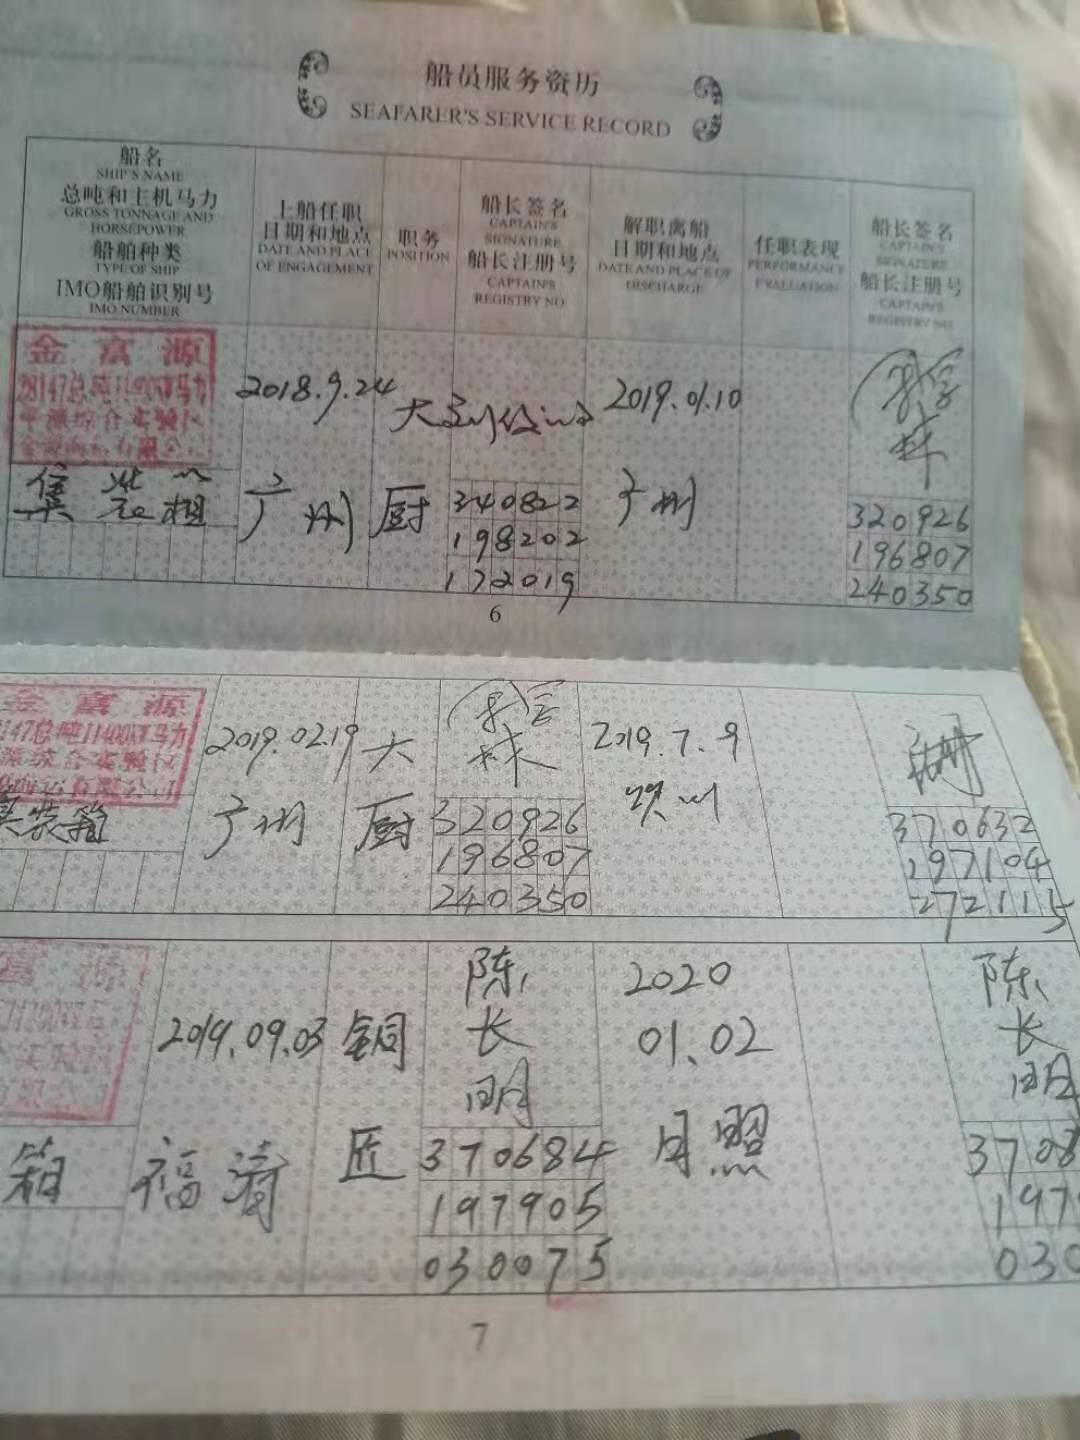 船员服务资历
SEAFARER'S SERVICE RECORD
船名
SHIP'S NAME
总吨和主机马力
GROSS TONNAGE AND
HORSEPOWER
船舶种类
TYPE OF SHIP
IMO船舶识别号
IMO NUMBER
上船任职
日期和地点
DATE AND PLACE
OF ENGAGEMENT
职务
POSITION
船长签名
CAPTAIN'S
SIGNATURE
船长注册号
CAPTAIN'S
REGISTRY NO
解职离船
日期和地点
DATE AND PLACE OF
DISCHARGE
任职表现
PERFORMANCE
EVALUATION
船长签名
CAPTAIN'S
SIGNATURE
船长注册号
CAPTAIN'S
REGISTRY NO
金富源
28147总吨11400 马力
综合实验区
有限公
集装箱
2018.9.24
广州
大
厨
340822
198202
172019
2019.01.10
广州
320926
196807
240350
6
金富源
147总吨11400 马力
综合实验区
有限公司
装箱
2019.02.19
广州
大
厨
320926
196807
240350
2019.7.9
370632
197104
272115
富源
箱
2019.09.03
福清
铜
匠
陈
长
明
370684
197905
030075
2020
01.02
陈
长
明
3708
197
030
7